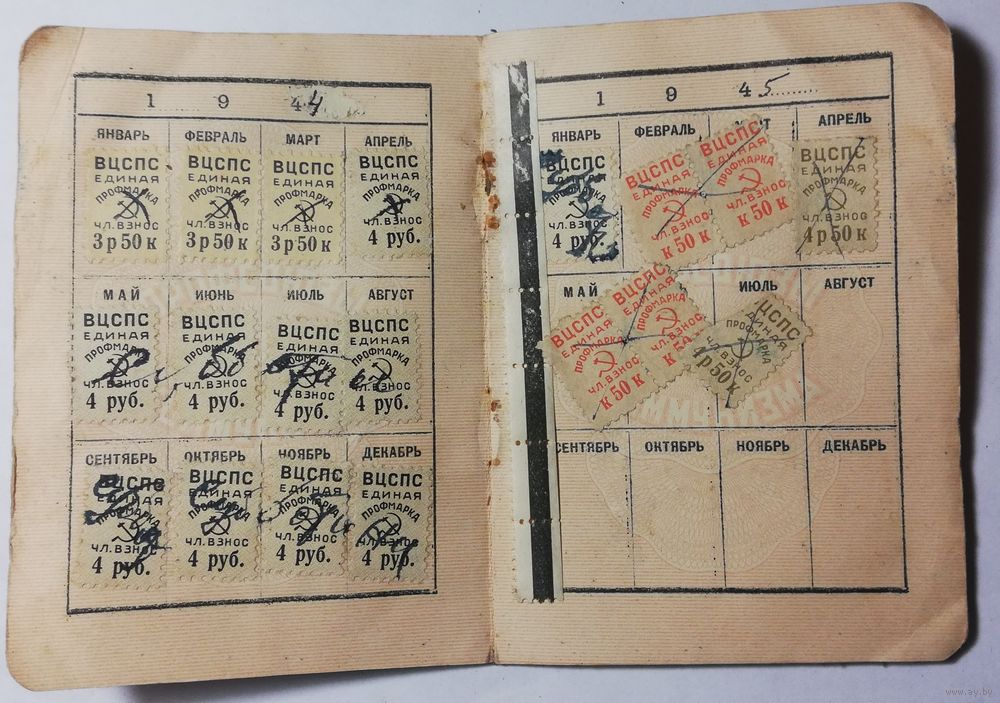 1 9 44
ЯНВАРЬ ФЕВРАЛЬ МАРТ АПРЕЛЬ
ВЦСПС ВЦСПС ВЦСПС ВЦСПС
ЕДИНАЯ ЕДИНАЯ ЕДИНАЯ ЕДИНАЯ
ПРОФМАРКА ПРОФМАРКА ПРОФМАРКА ПРОФМАРКА
ЧЛ. ВЗНОС ЧЛ. ВЗНОС ЧЛ. ВЗНОС ЧЛ. ВЗНОС
3 р 50 к 3 р 50 к 3 р 50 к 4 руб.
МАЙ ИЮНЬ ИЮЛЬ АВГУСТ
ВЦСПС ВЦСПС ВЦСПС ВЦСПС
ЕДИНАЯ ЕДИНАЯ ЕДИНАЯ ЕДИНАЯ
ПРОФМАРКА ПРОФМАРКА ПРОФМАРКА ПРОФМАРКА
ЧЛ. ВЗНОС ЧЛ. ВЗНОС ЧЛ. ВЗНОС ЧЛ. ВЗНОС
4 руб. 4 руб. 4 руб. 4 руб.
СЕНТЯБРЬ ОКТЯБРЬ НОЯБРЬ ДЕКАБРЬ
ВЦСПС ВЦСПС ВЦСПС ВЦСПС
ЕДИНАЯ ЕДИНАЯ ЕДИНАЯ ЕДИНАЯ
ПРОФМАРКА ПРОФМАРКА ПРОФМАРКА ПРОФМАРКА
ЧЛ. ВЗНОС ЧЛ. ВЗНОС ЧЛ. ВЗНОС ЧЛ. ВЗНОС
4 руб. 4 руб. 4 руб. 4 руб.
1 9 45
ЯНВАРЬ ФЕВРАЛЬ АПРЕЛЬ
ВЦСПС ВЦСПС ВЦСПС ВЦСПС
ЕДИНАЯ ЕДИНАЯ ЕДИНАЯ
ПРОФМАРКА ПРОФМАРКА ПРОФМАРКА
ЧЛ. ВЗНОС ЧЛ. ВЗНОС ЧЛ. ВЗНОС ЧЛ. ВЗНОС
4 руб. к 50 к к 50 к 4 р 50 к
МАЙ ИЮЛЬ АВГУСТ
ВЦСПС ВЦСПС ЦСПС
ЕДИНАЯ ЕДИНАЯ ДИНАЯ
ПРОФМАРКА ПРОФМАРКА ПРОФМАРКА
ЧЛ. ВЗНОС ЧЛ. ВЗНОС ЧЛ. ВЗНОС
к 50 к 4 р 50 к
СЕНТЯБРЬ ОКТЯБРЬ НОЯБРЬ ДЕКАБРЬ
www.ay.by